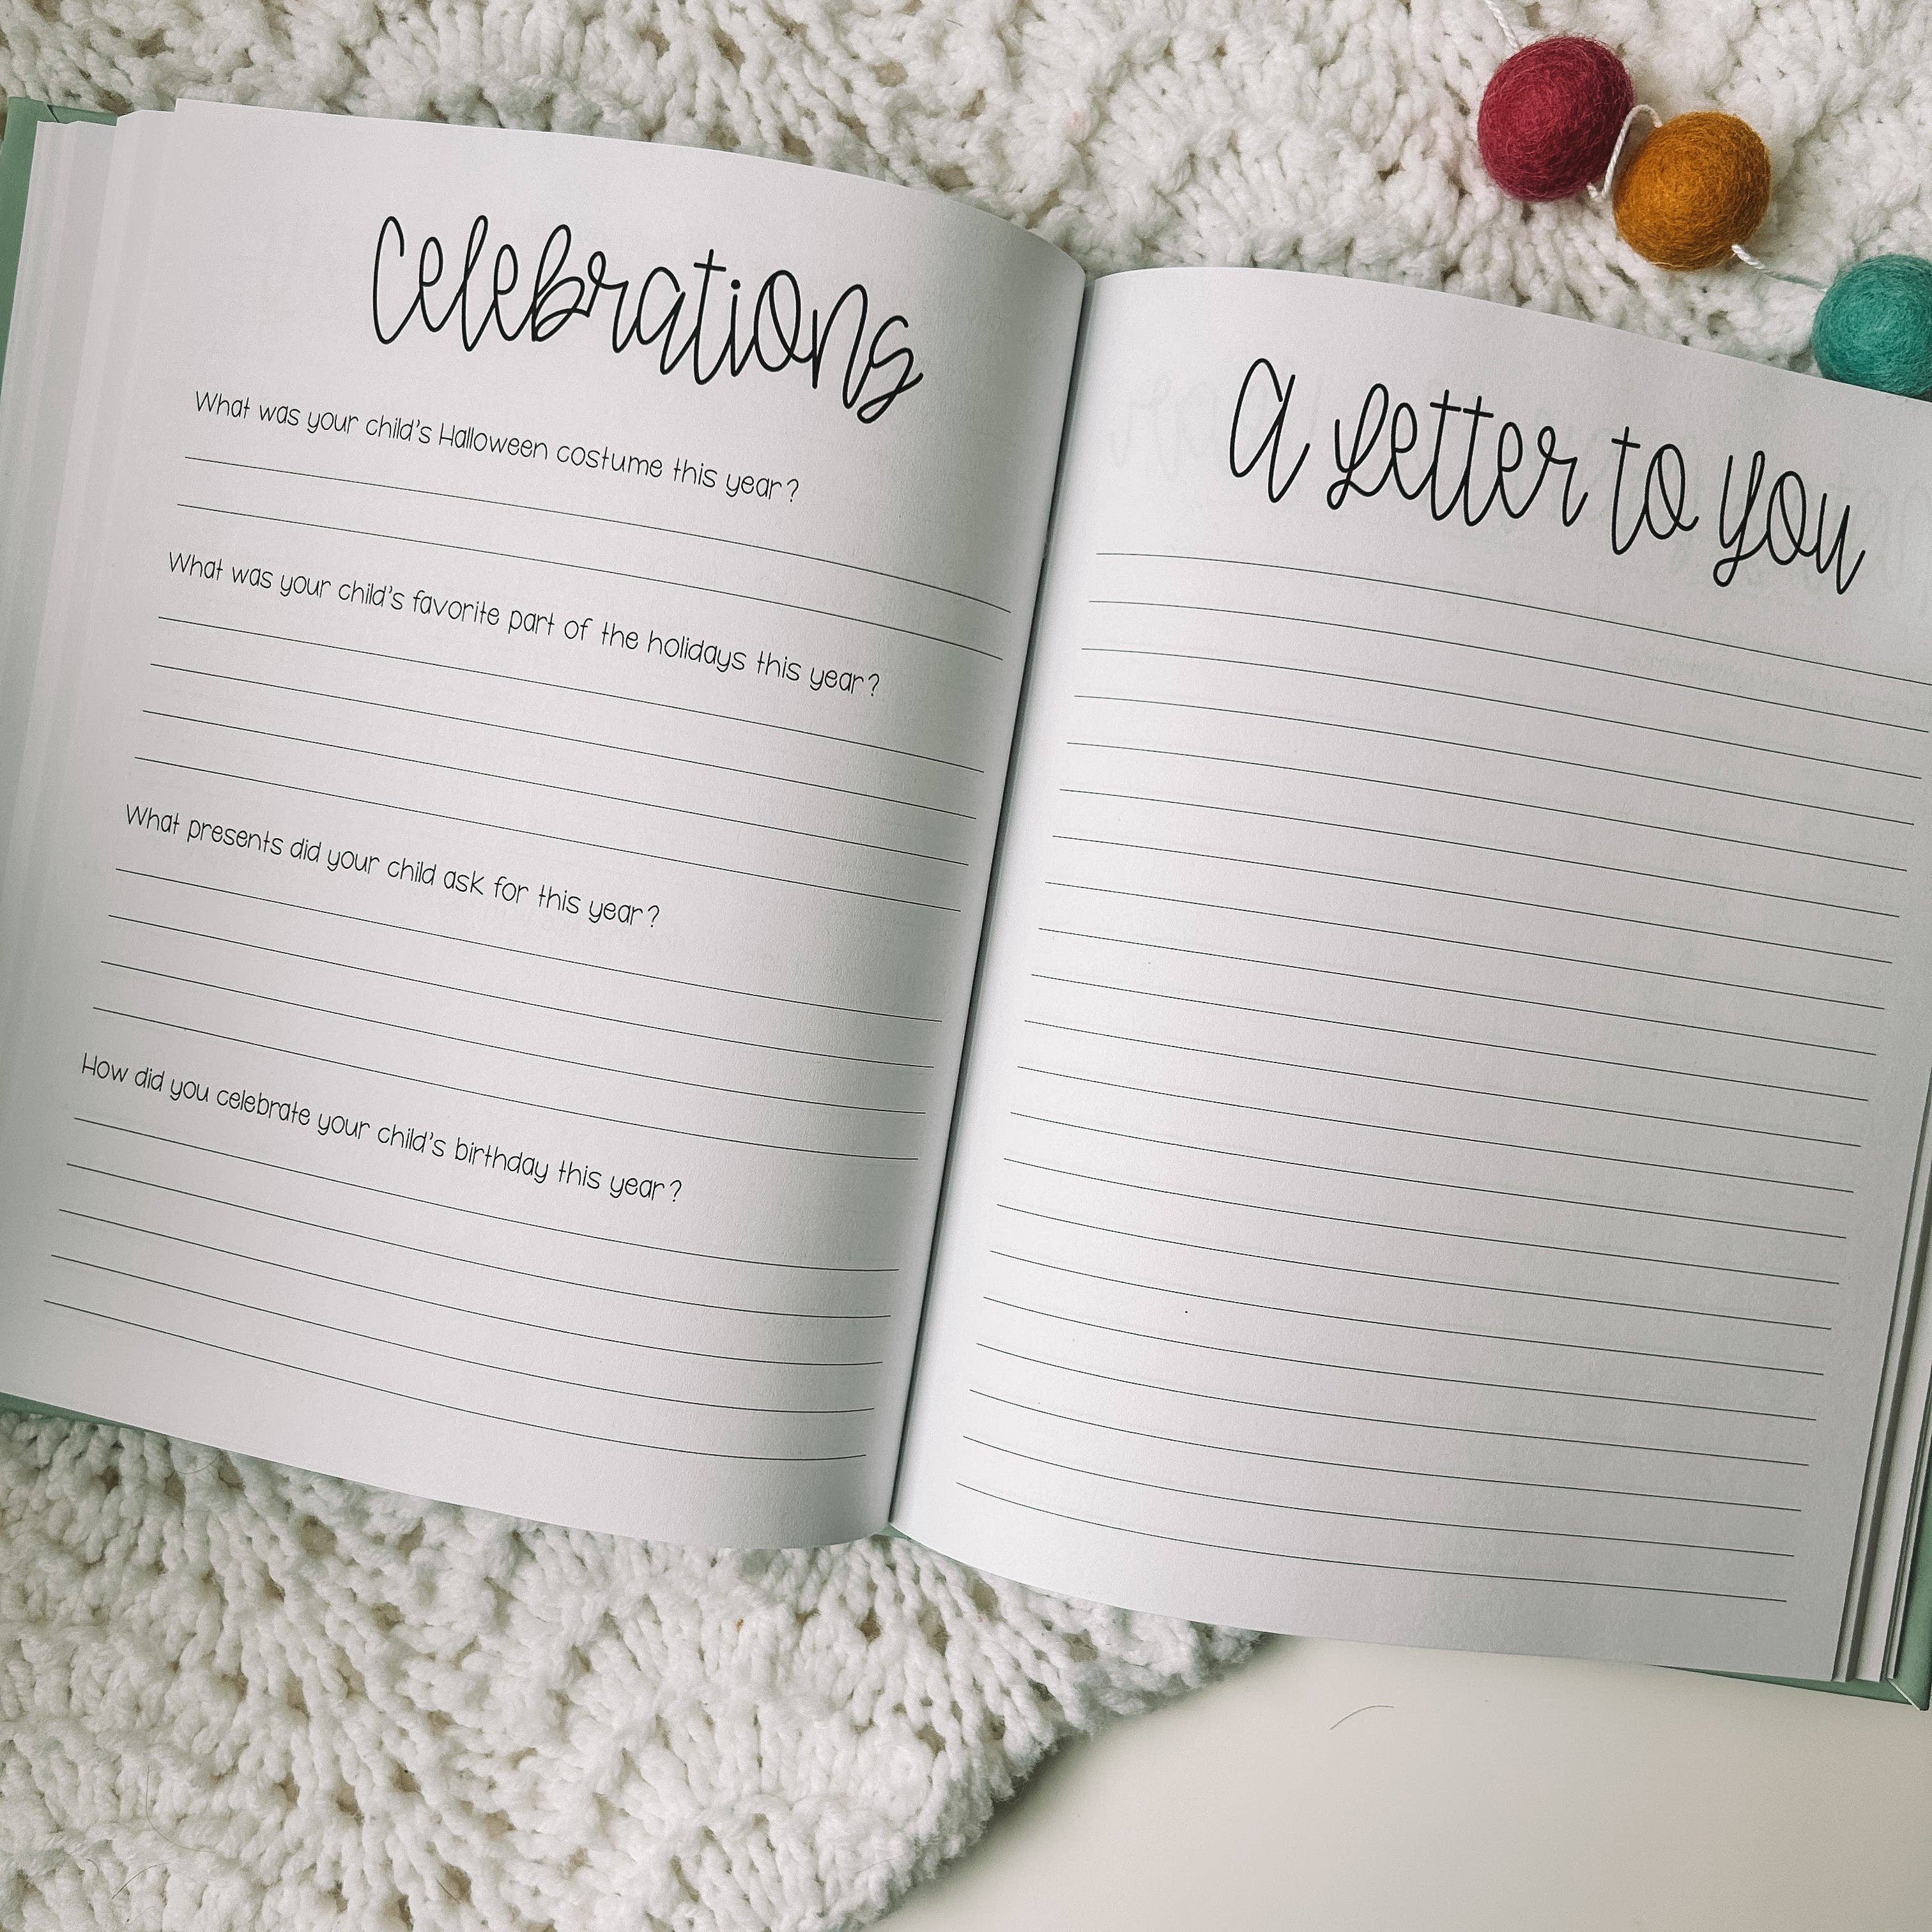 Celebrations
What was your child's Halloween costume this year?
What was your child's favorite part of the holidays this year?
What presents did your child ask for this year?
How did you celebrate your child's birthday this year?
A letter to you